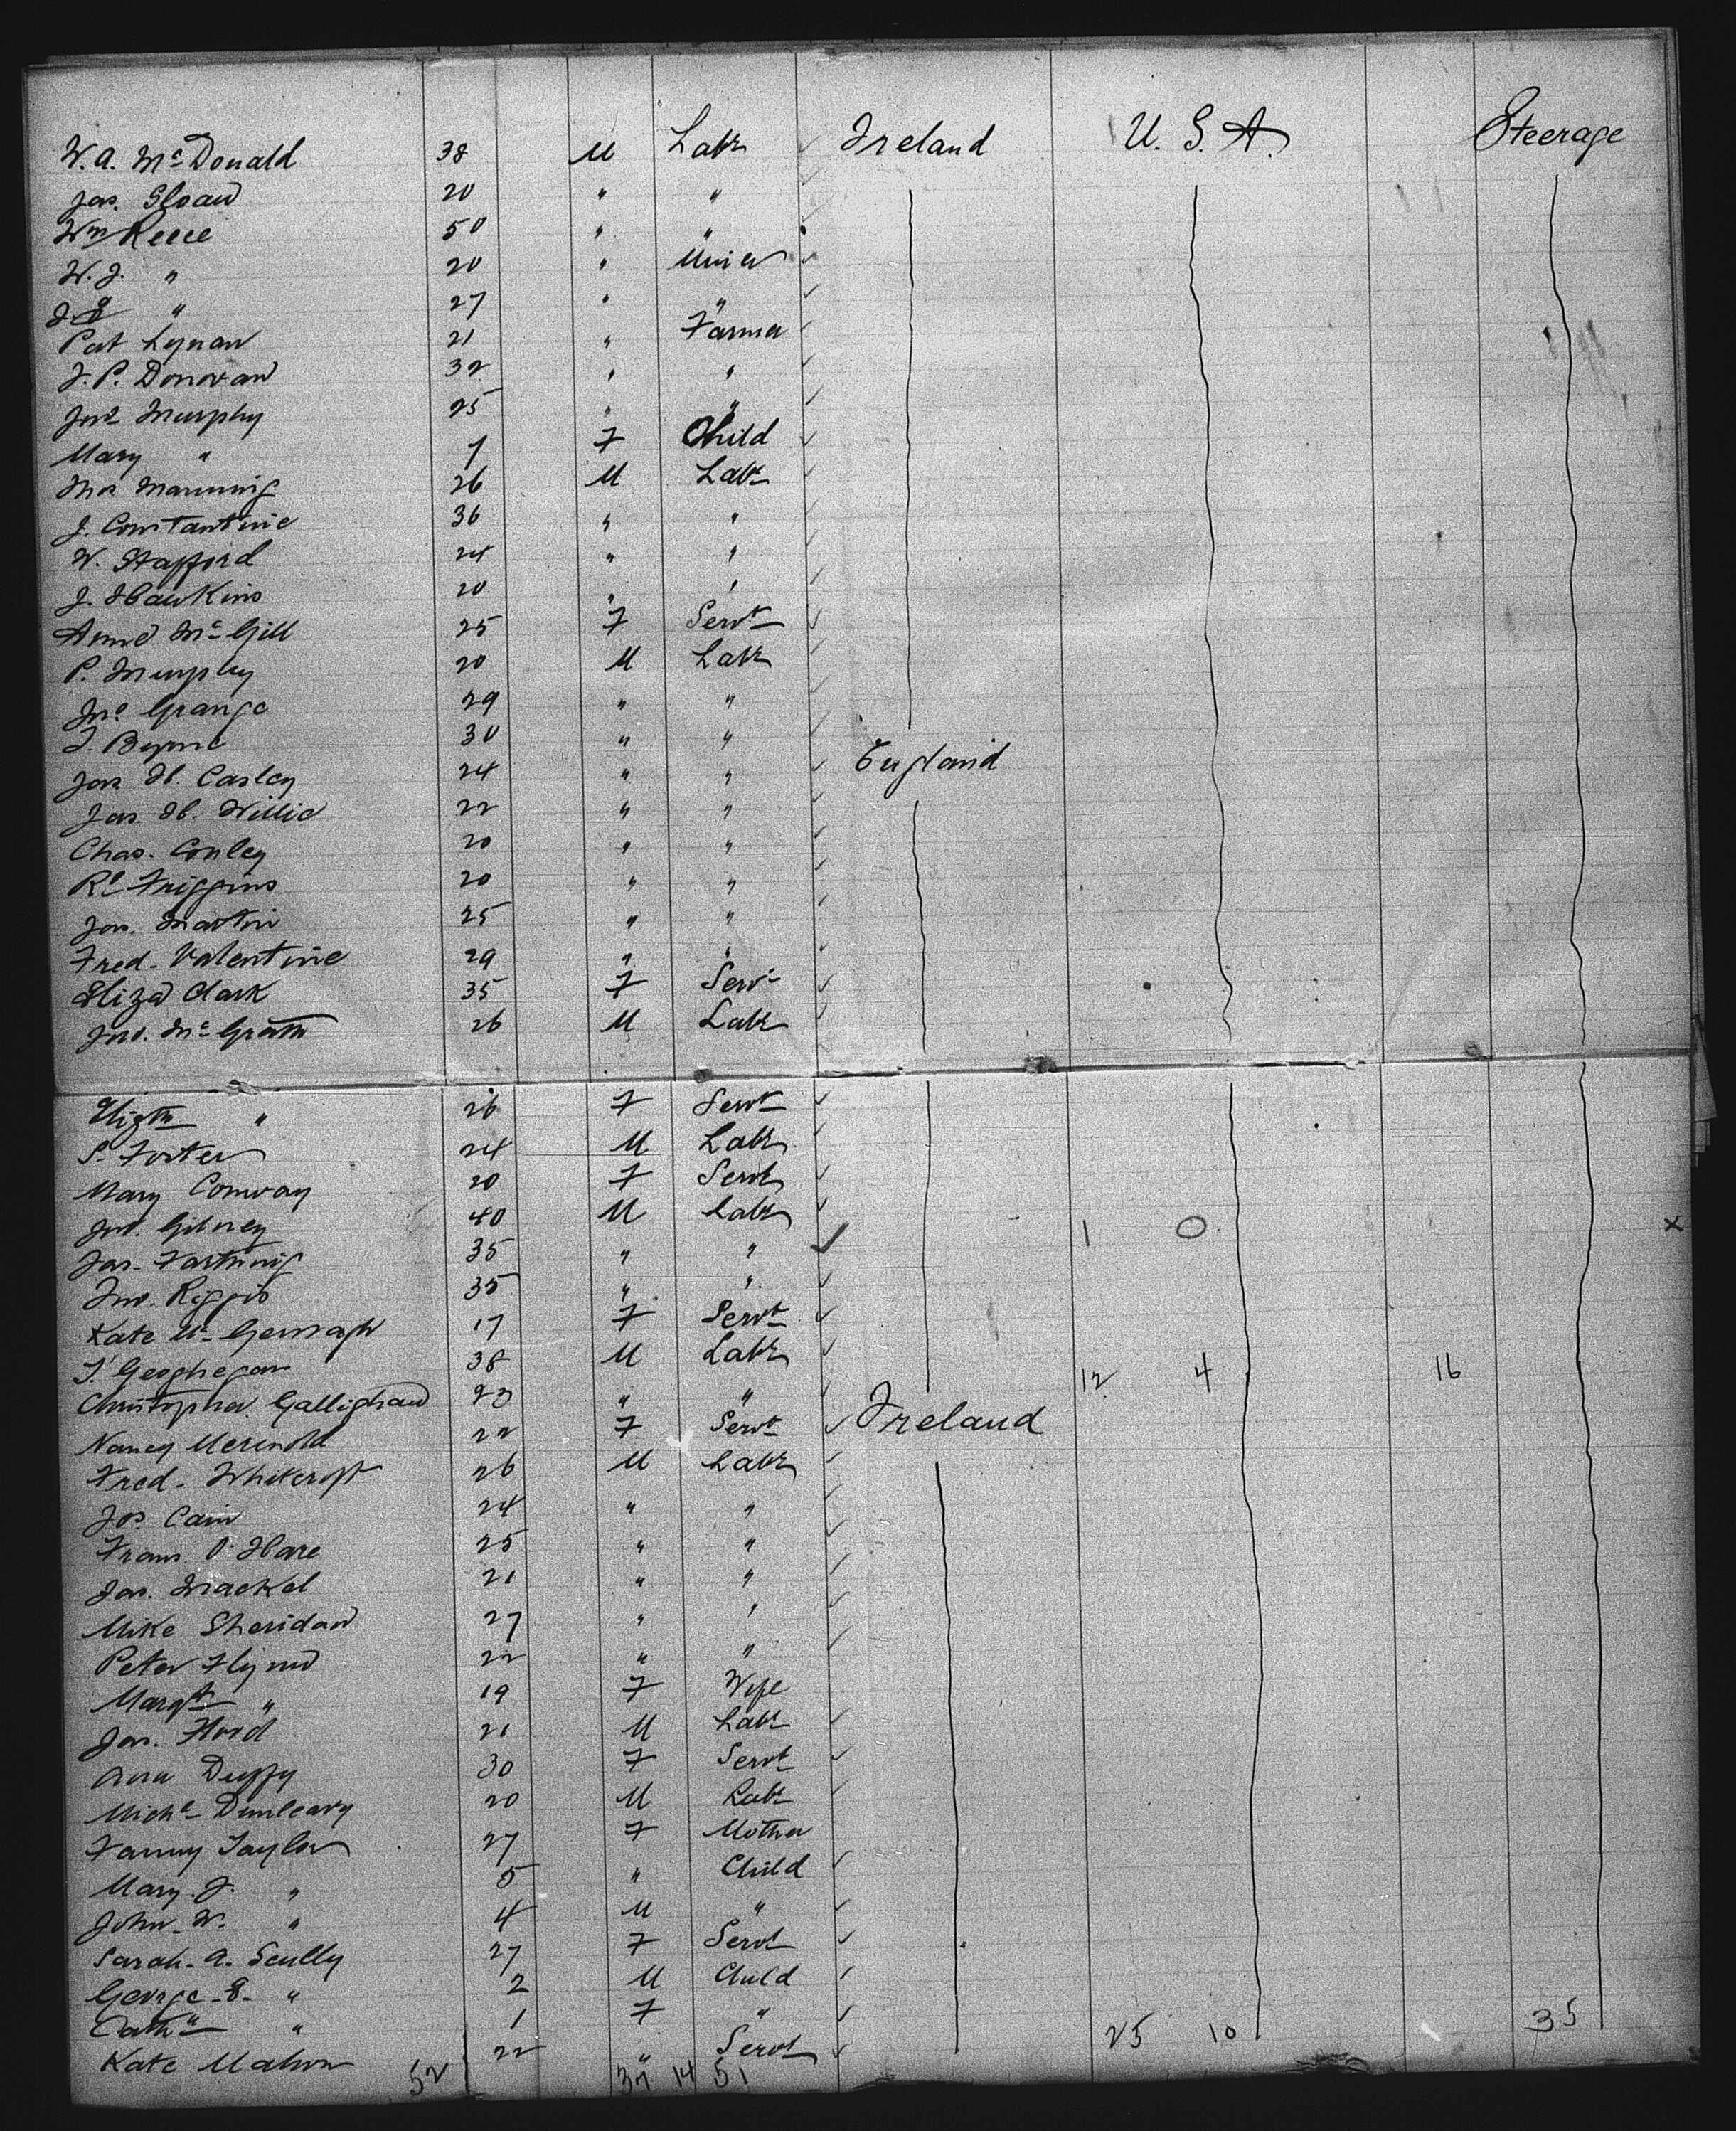 W. A. McDonald 38 M Labr Ireland U. S. A. Steerage
Jas. Sloan 20 " "
Wm Reece 50 " "
W. J. " 20 " Miner
J. E " 27 " "
Pat Lynan 21 " Farmer
J. P. Donovan 32 " "
Jno Murphy 25 " "
Mary " 7 F Child
Manning 26 M Labr
J. Constantine 36 " "
W. Stafford 24 " "
J. Hawkins 20 " "
Anne McGill 25 F Servt
P. Murphy 20 M Labr
Jno Grange 29 " "
J. Byrne 30 " "
Jas H Casley 24 " " England
Jas. H. Willie 22 " "
Chas. Conley 20 " "
Rd Friggins 20 " "
Jas. Martin 25 " "
Fred. Valentine 29 " "
Eliza Clark 35 F Servt
Jno. McGrath 26 M Labr
Elizth " 26 F Servt
S. Forter 24 M Labr
Mary Conway 20 F Servt
Jno. Gibney 40 M Labr
Jas. 35 " " 1 0 x
Jno. Riggis 35 " "
Kate 17 F Servt
J. Geoghegan 38 M Labr 12 4 16
Christopher Gallighan 23 " "
Nancy 22 F Servt Ireland
Fred. Whitcroft 26 M Labr
Jos. Cain 24 " "
Frans. O'Hare 25 " "
Jas. Mackel 21 " "
Mike Sheridan 27 " "
Peter Flynn 22 " "
Margt " 19 F Wife
Jas. Flood 21 M Labr
Ann Duffy 30 F Servt
Michl Dunleavy 20 M Labr
Fanny Taylor 27 F Mother
Mary. J. " 5 " Child
John. W. " 4 M "
Sarah. A. Scully 27 F Servt
George. E. " 2 M Child
Cathn " 1 F " 25 10 35
Kate Mahon 22 " Servt
52 37 14 51